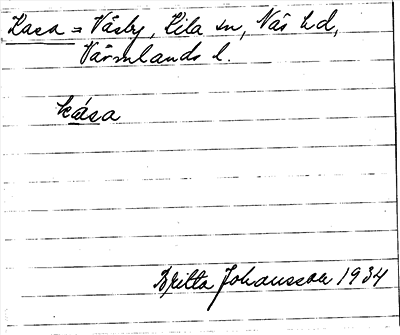 Kasa = Våsby, Kila sn, Näs hd,
Värmlands l.
kása
Britta Johansson 1934